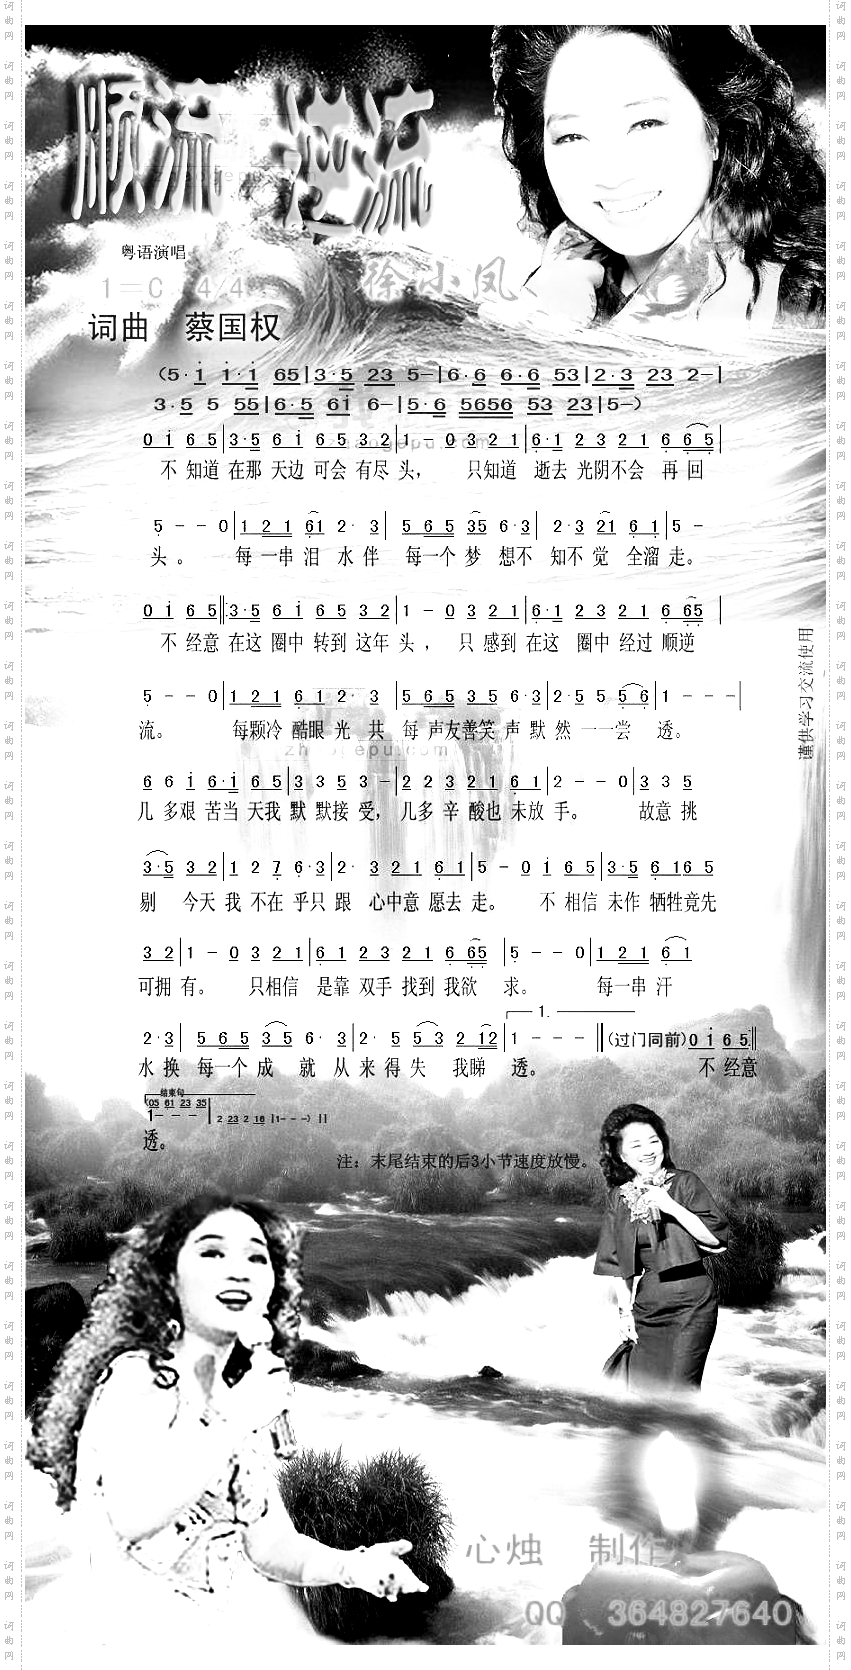 顺流 逆流
粤语演唱
1=C 4/4
徐小凤
词曲 蔡国权
(5·i i·i 65|3·5 23 5-|6·6 6·6 53|2·3 23 2-|
3·5 5 55|6·5 6i 6-|5·6 5656 53 23|5-)
0 i 6 5|3·5 6 i 6 5 3 2|1 - 0 3 2 1|6·1 2 3 2 1 6 6 5|
不 知道 在那 天边 可会 有尽 头， 只知道 逝去 光阴不会 再 回
5 - - 0|1 2 1 61 2· 3|5 6 5 35 6·3|2·3 21 6 1|5 -
头 。 每 一串 泪 水 伴 每一个 梦 想不 知不 觉 全溜 走。
0 i 6 5‖3·5 6 i 6 5 3 2|1 - 0 3 2 1|6·1 2 3 2 1 6 65|
不 经意 在这 圈中 转到 这年 头 ， 只 感到 在这 圈中 经过 顺逆
5 - - 0|1 2 1 6 1 2· 3|5 6 5 3 5 6·3|2·5 5 5 6|1 - - -|
流。 每颗冷 酷眼 光 共 每 声友善笑 声 默 然 一一尝 透。
6 6 i 6·i 6 5|3 3 5 3 -|2 2 3 2 1 6 1|2 - - 0|3 3 5
几 多艰 苦当 天我 默 默接 受， 几多 辛 酸也 未放 手。 故意 挑
3·5 3 2|1 2 7 6·3|2· 3 2 1 6 1|5 - 0 i 6 5|3·5 6 i6 5
剔 今天 我 不在 乎只 跟 心中意 愿去 走。 不 相信 未作 牺牲竟先
3 2|1 - 0 3 2 1|6 1 2 3 2 1 6 65|5 - - 0|1 2 1 6 1
可拥 有。 只相信 是靠 双手 找到 我欲 求。 每一串 汗
2·3|5 6 5 3 5 6· 3|2· 5 5 3 2 12|1 - - -‖(过门同前)0 i 6 5‖
1.
水 换 每一个 成 就 从 来 得 失 我睇 透。 不 经意
结束句
(05 61 23 35
1- - -|2 23 2 16|1- - -)‖
透。
注：末尾结束的后3小节速度放慢。
谨供学习交流使用
心烛 制作
QQ 364827640
zhaogepu.com
词曲网